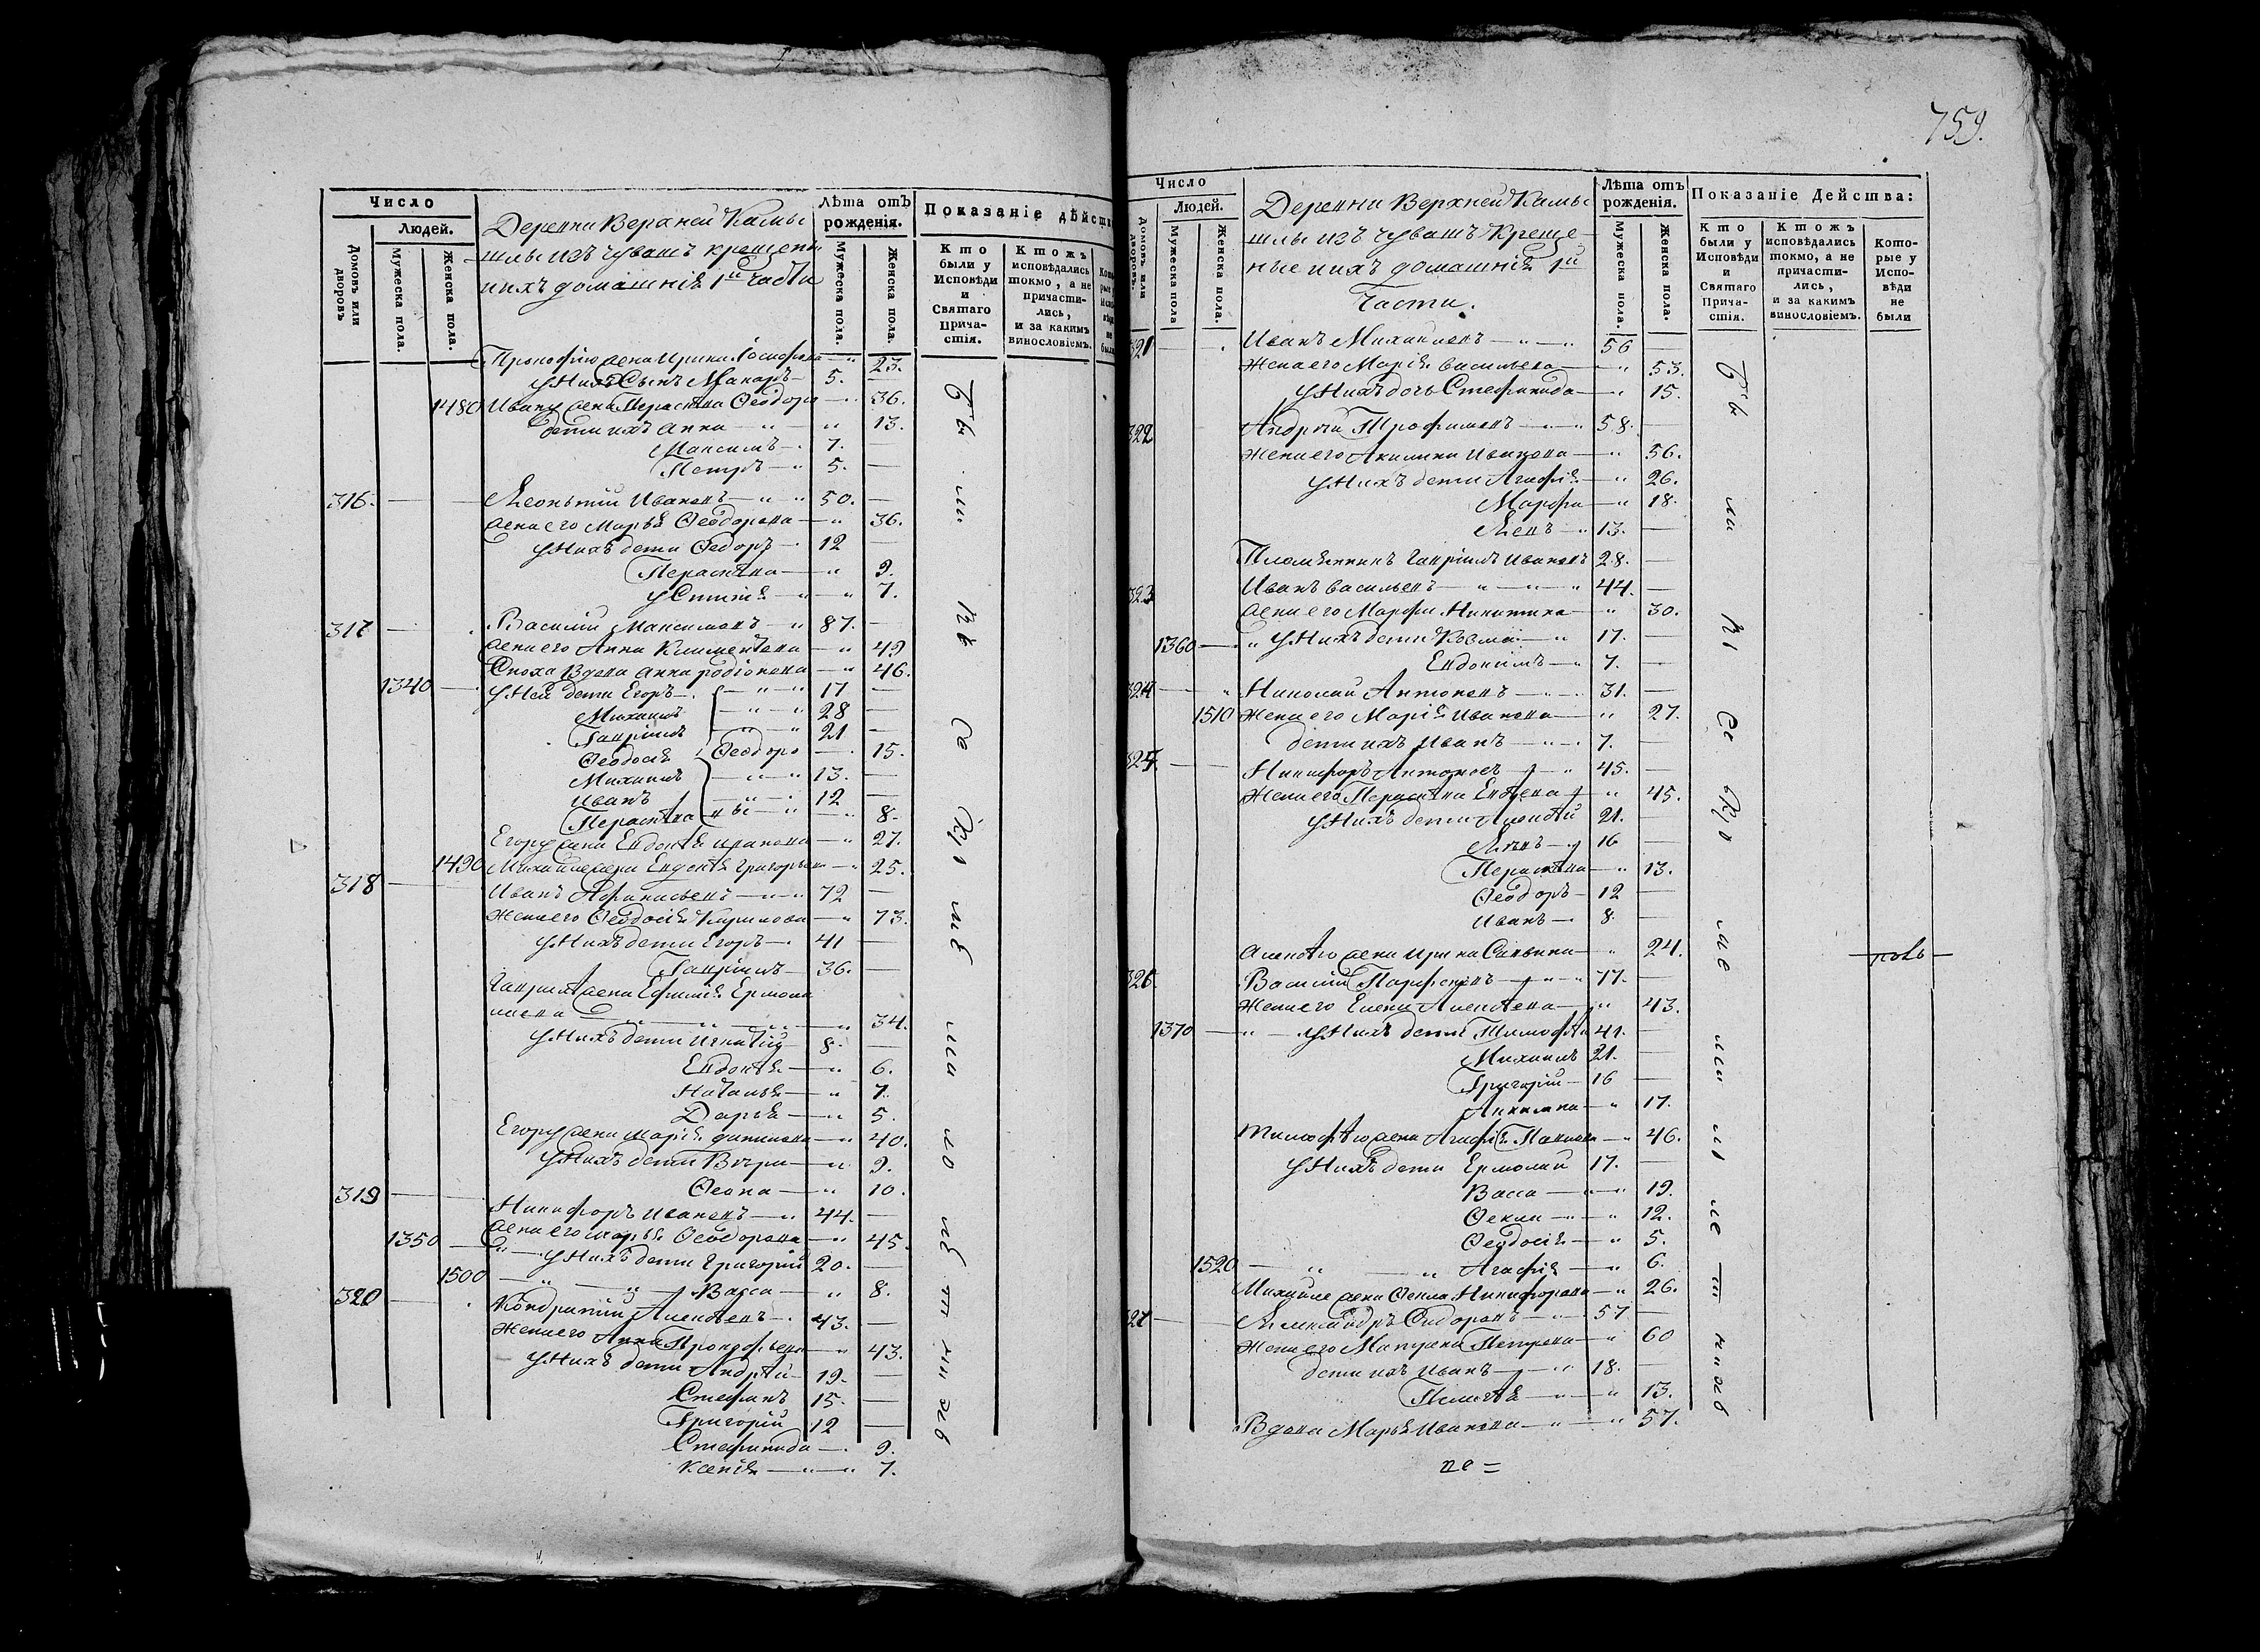 759.
Число
Людей.
Домовъ или дворовъ
Мужеска пола.
Женска пола.
Деревни Верхней Камы-
шлы изъ чувашъ крещены
и ихъ домашнія 1й части
Лѣта отъ рожденія.
Мужеска пола.
Женска пола.
Показаніе дѣйст
Кто были у Исповѣди и Святаго Причастія.
Ктожъ исповѣдались токмо, а не причастились, и за какимъ винословіемъ.
Прокофію жена Ирина Іосифова — 23.
У нихъ сынъ Макаръ — 5.
1480 Ивану жена Параскева Ѳеодоро — 36.
дети ихъ Анна — 13.
Максимъ — 7.
Петръ — 5.
316. Леонтий Ивановъ — 50.
жена его Марья Ѳеодорова — 36.
У нихъ дети Ѳедоръ — 12
Параскева — 9.
Устинія — 7.
317 Василий Максимовъ — 87.
жена его Анна Климентева — 49
Сноха вдова Анна Родіонова — 46.
1340 У ней дети Егоръ — 17
Михаилъ — 28
Гавріилъ — 21
Ѳеодосія Ѳеодоро — 15.
Михаилъ — 13.
Иванъ — 12
Параскева вы — 8.
Егору жена Евдокія Иванова — 27.
1490 Михаиле жена Евдокія Григорьева — 25.
318 Иванъ Афанасьевъ — 72
Жена его Ѳеодосія Кирилова — 73.
У нихъ дети Егоръ — 41
Гавріилъ — 36.
Гавриилѣ жена Ефимія Ермола
иева — 34.
У нихъ дети Игнатій 8.
Евдокія — 6.
Наталья — 7.
Дарья — 5.
Егору жена Марія Данилова — 40.
У нихъ дети Вѣра — 9.
Ѳеона — 10.
319 Никифоръ Ивановъ — 44.
Жена его Марья Ѳеодорова — 45.
1350 У нихъ дети Григорий 20.
1500 Васса — 8.
320 Кондратий Алексѣевъ — 43.
Жена его Анна Прокофьева — 43.
У нихъ дети Андрѣй — 19.
Стефанъ 15.
Григорий 12
Стефанида — 9.
Ксенія — 7.
Число
Людей.
Домовъ или дворовъ.
Мужеска пола
Женска пола.
Деревни Верхней Камы-
шлы изъ чувашъ креще-
ные и ихъ домашнія 1й
Части.
Лѣта отъ рожденія.
Мужеска пола.
Женска пола.
Показаніе Дейсшва:
Кто были у Исповѣди и Святаго Причастія.
Ктожъ исповѣдались токмо, а не причастились, и за какимъ винословіемъ.
Которые у Исповѣди не были
321 Иванъ Михаиловъ — 56
Жена его Марія Васильева — 53.
У нихъ дочь Стефанида — 15.
322 Андрѣй Трофимовъ — 58.
Жена его Акилина Иванова — 56.
У нихъ дети Агафія — 26.
Марфа — 18.
Левъ — 13.
Племянникъ Гавріилъ Ивановъ 28.
323 Иванъ Васильевъ — 44.
Жена его Марфа Никитина — 30.
1360 У нихъ дети Козма — 17.
Евдокимъ — 7.
324 Николай Антоновъ — 31.
1510 Жена его Марія Иванова — 27.
дети ихъ Иванъ — 7.
325. Никифоръ Антоновъ — 45.
Жена его Параскева — 45.
У нихъ дети Алексѣй 21.
Левъ — 16
Параскева — 13.
Ѳеодоръ — 12
Иванъ — 8.
Алексѣю жена Ирина Савина — 24.
326. Василий Парфеновъ — 77.
Жена его Елена Алексѣева — 43.
1370 У нихъ дети Тимофѣй 41.
Михаилъ 21.
Григорій — 16
Акилина — 17.
Тимофѣю жена Агафія Павлова — 46.
У нихъ дети Ермолай 17.
Васса — 19.
Ѳекла — 12.
Ѳеодосія — 5.
1520 Агафія — 6.
Михаиле жена Ѳекла Никифорова — 26.
327 Александръ Сидоровъ — 57
Жена его Матрена Петрова — 60
дети ихъ Иванъ — 18.
Пелагея — 13.
Вдова Марья Иванова — 57.